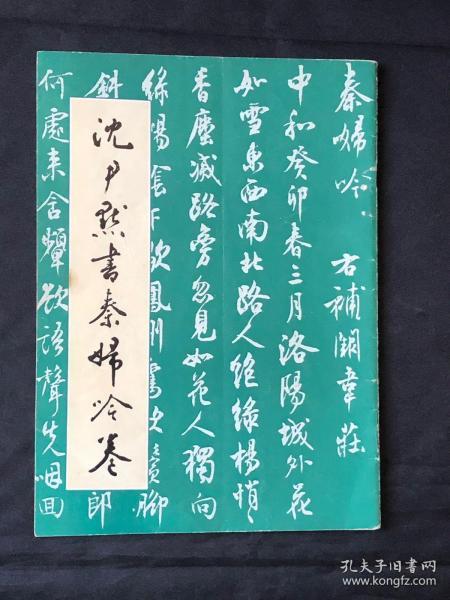 秦婦吟 右補闕韋莊
中和癸卯春三月洛陽城外花
如雪東西南北路人絕綠楊悄〻
香塵滅路旁忽見如花人獨向
綠楊
脚
斜
郎
何處來含顰欲語聲先咽回
沈尹默書秦婦吟卷
孔夫子旧书网
www.kongfz.com